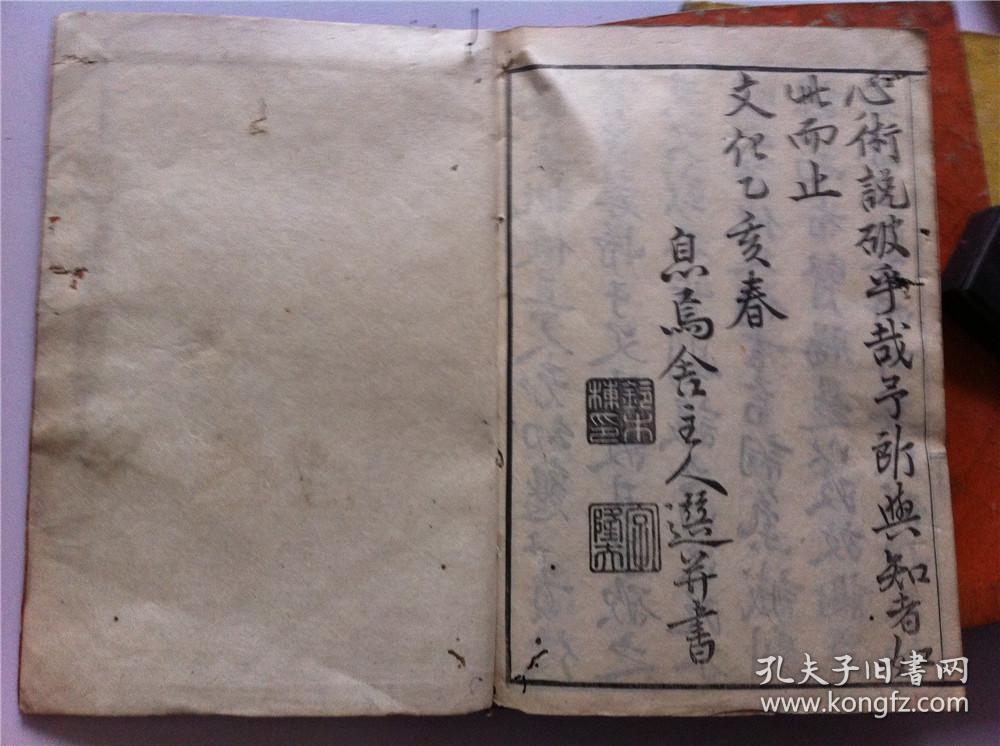 心術説破乎哉予所與知者如
此而止
文化乙亥春
息焉舍主人選并書
孔夫子旧書网
www.kongfz.com